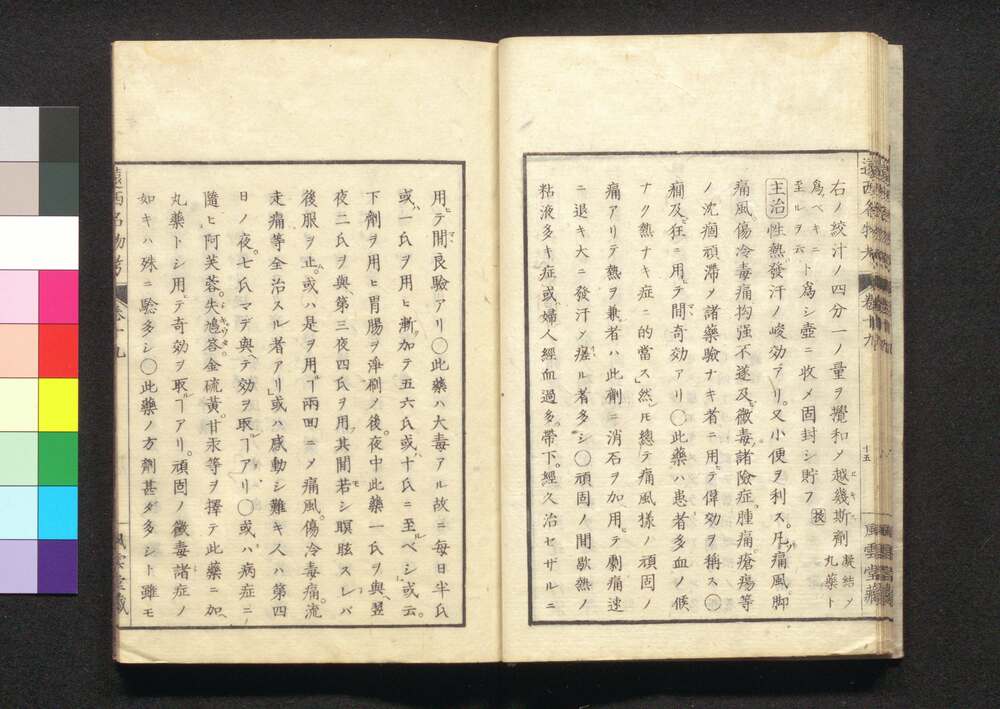 右ノ絞汁ノ四分一ノ量ヲ攪和メ越幾斯劑 凝結ヲ丸藥ト
爲ベキニ至ルヲ云 ト爲シ壺ニ收メ固封シ貯フ
主治 性熱發汗ノ峻効アリ。又小便ヲ利ス。凡痛風脚
痛風傷冷毒痛拘强不遂及黴毒諸險症。腫痛瘡瘍等
ノ沈痼頑滯メ諸藥驗ナキ者ニ用テ偉効ヲ稱ス〇
癇及狂ニ用テ間奇効アリ〇此藥ハ患者多血ノ候
ナク熱ナキ症ニ的當ス然𪜈總テ痛風樣ノ頑固ノ
痛アリテ熱ヲ兼者ハ此劑ニ消石ヲ加用テ劇痛速
ニ退キ大ニ發汗メ瘥ル者多シ〇頑固ノ間歇熱ノ
粘液多キ症或婦人經血過多。帶下。經久治セザルニ
遠西名物考 卷十九
十五
風雲堂藏
用テ間良驗アリ〇此藥ハ大毒アル故ニ每日半氏
或一氏ヲ用ヒ漸加テ五六氏或十氏ニ至ルベシ或云。
下劑ヲ用ヒ胃腸ヲ淨刷ノ後。夜中此藥一氏ヲ與。翌
夜二氏ヲ與。第三夜四氏ヲ用其間若シ瞑眩スレバ
後服ヲ止。或ハ是ヲ用ヿ兩回ニメ痛風。傷冷毒痛。流
走痛等全治スル者アリ或ハ感動シ難キ人ハ第四
日ノ夜。七氏マデ與テ効ヲ取ヿアリ〇或ハ病症ニ
隨ヒ阿芙蓉。失鳩答。金硫黃。甘汞等ヲ擇テ此藥ニ加
丸藥トシ用テ奇効ヲ取ヿアリ。頑固ノ黴毒諸症ノ
如キハ殊ニ驗多シ〇此藥ノ方劑甚タ多シト雖モ